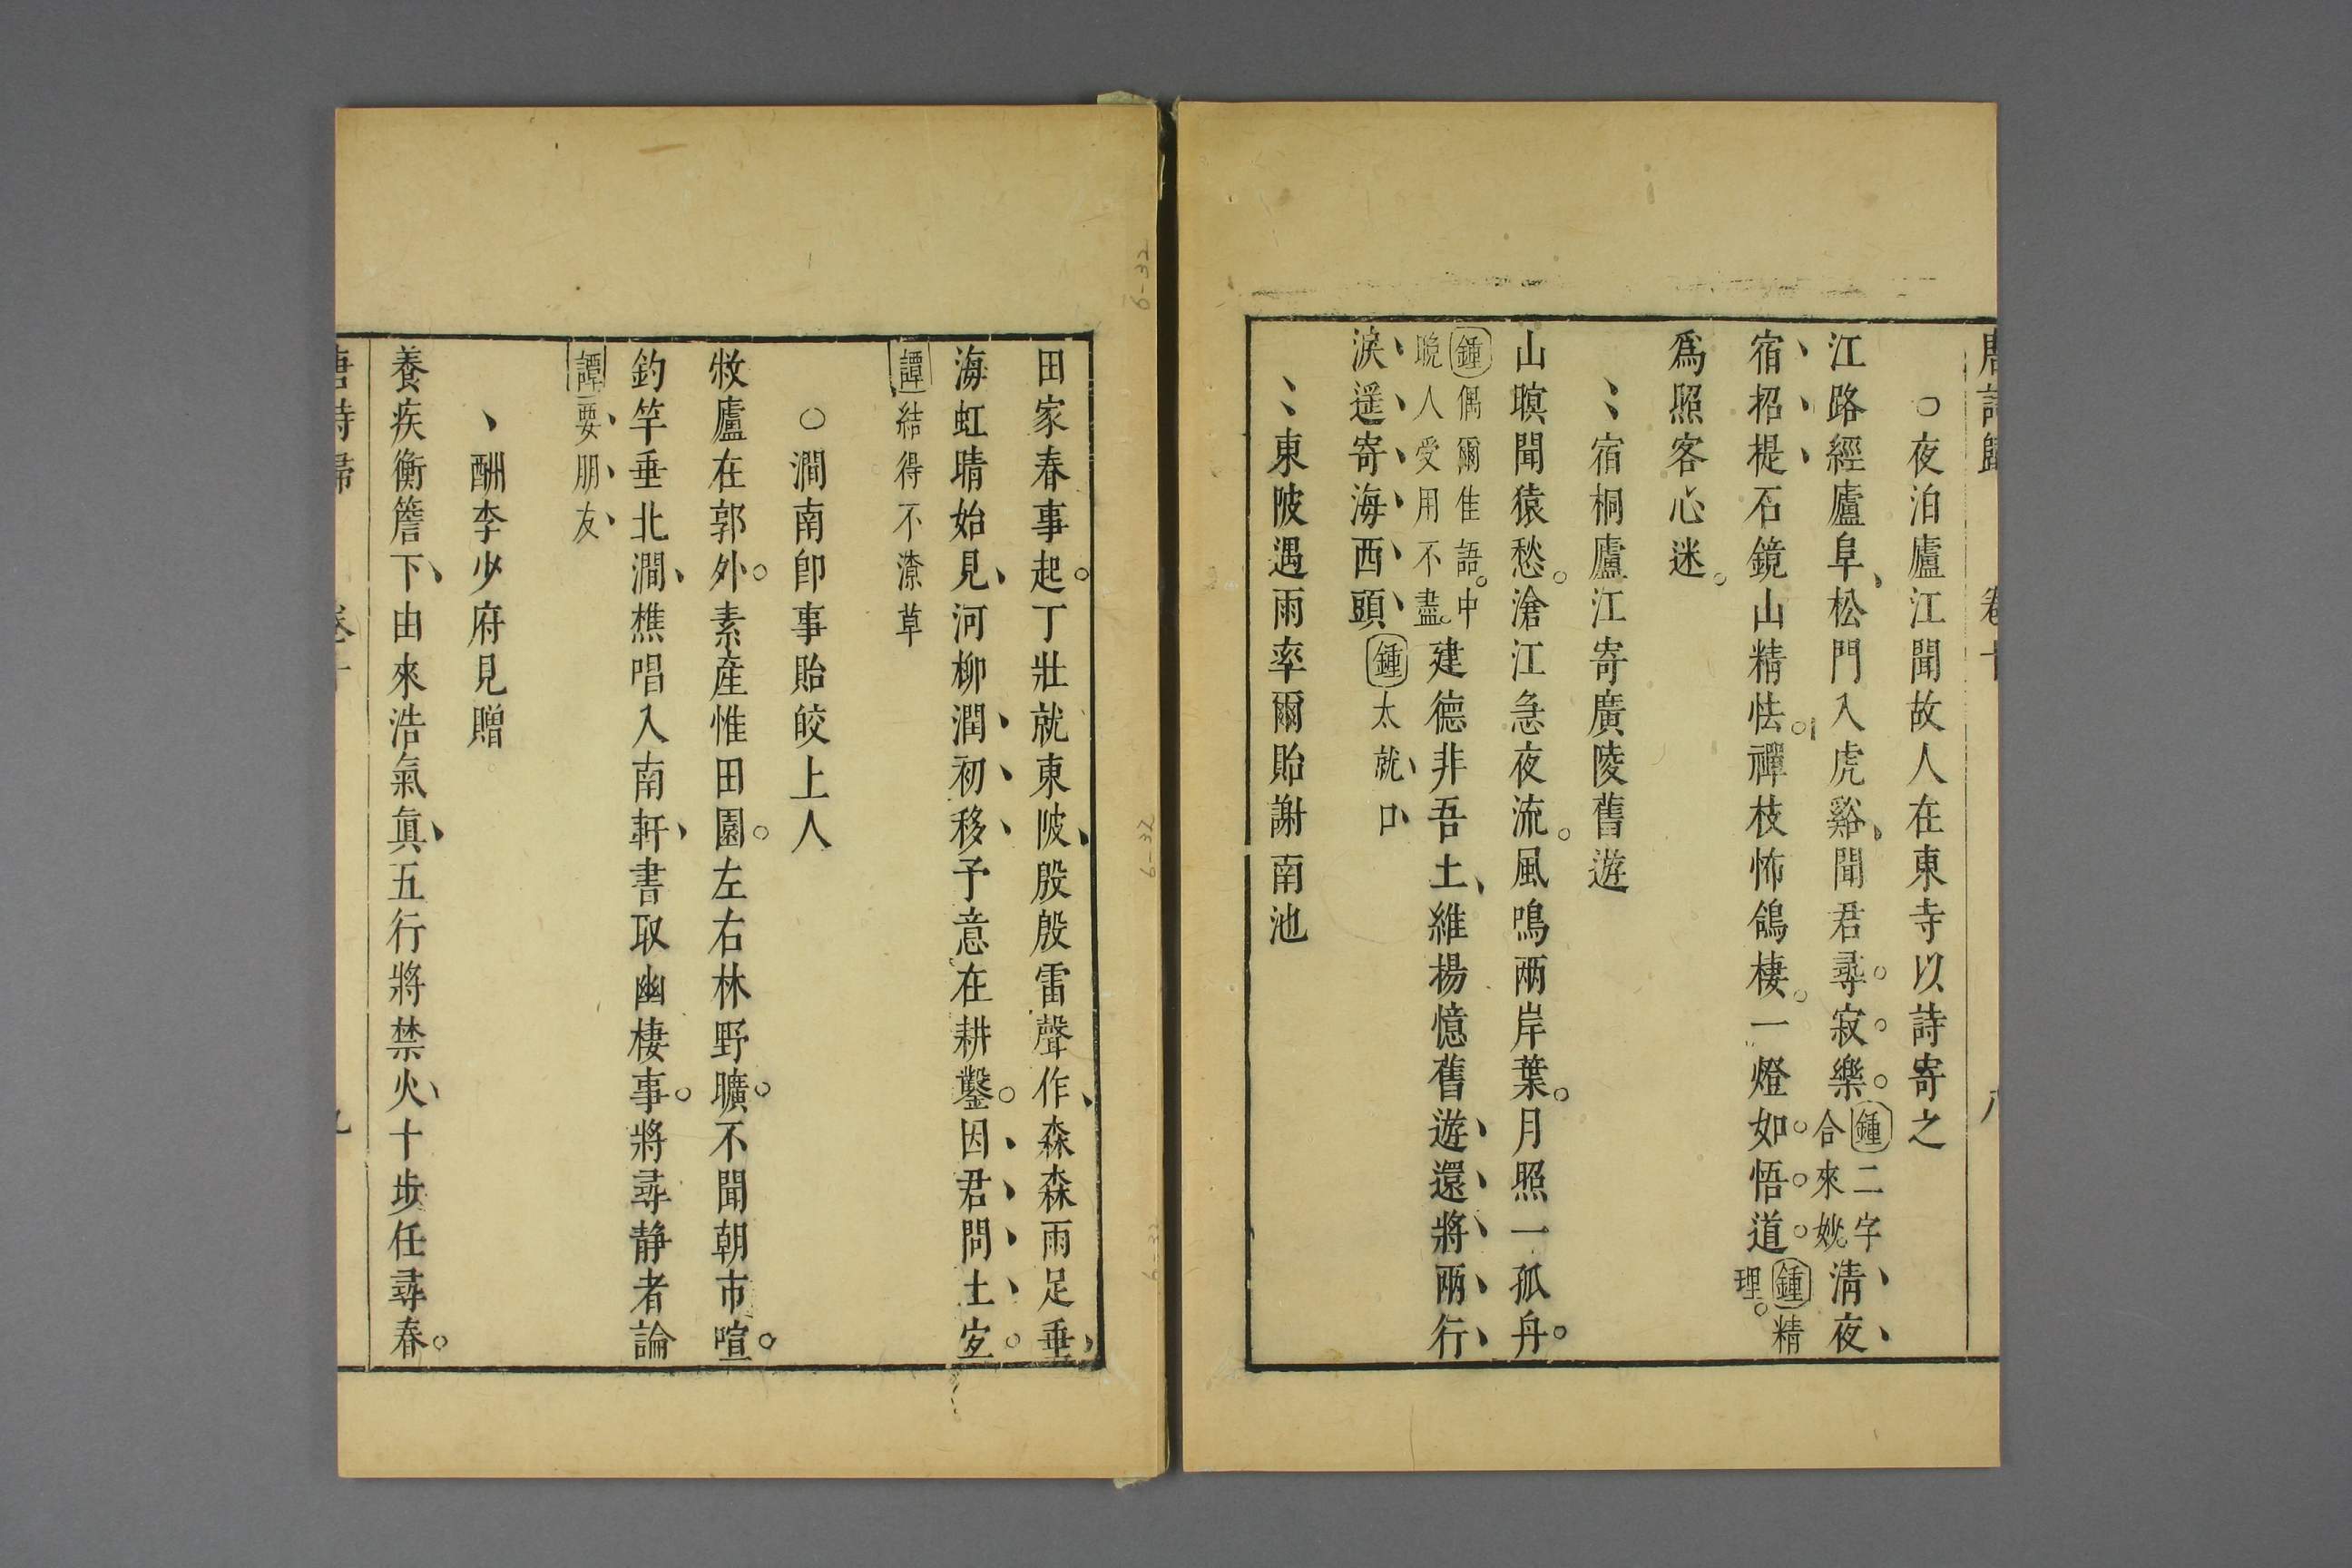 唐詩歸 卷十 八
○夜泊廬江聞故人在東寺以詩寄之
江路經廬阜、松門入虎谿、聞君尋寂樂。鍾二字合來妙清夜
宿招提石鏡山精怯。禪枝怖鴿棲。一燈如悟道。鍾精理。
爲照客心迷。
、、宿桐廬江寄廣陵舊遊
山暝聞猿愁。滄江急夜流。風鳴兩岸葉。月照一孤舟。
鍾偶爾佳語。中晚人受用不盡。建德非吾土、維揚憶舊遊還將兩行
淚遥寄海西頭鍾太就口
、、東陂遇雨率爾貽謝南池
田家春事起。丁壯就東陂、殷殷雷聲作、森森雨足垂、
海虹晴始見、河柳潤初移予意在耕鑿。因君問土宜。
譚結得不潦草
○澗南即事貽皎上人
敝廬在郭外。素產惟田園。左右林野曠。不聞朝市喧。
釣竿垂北澗、樵唱入南軒、書取幽棲事。將尋静者論
譚要朋友
、酬李少府見贈
養疾衡簷下、由來浩氣眞、五行將禁火、十步任尋春。
唐詩歸 卷十 九
6-32
6-32
6-32